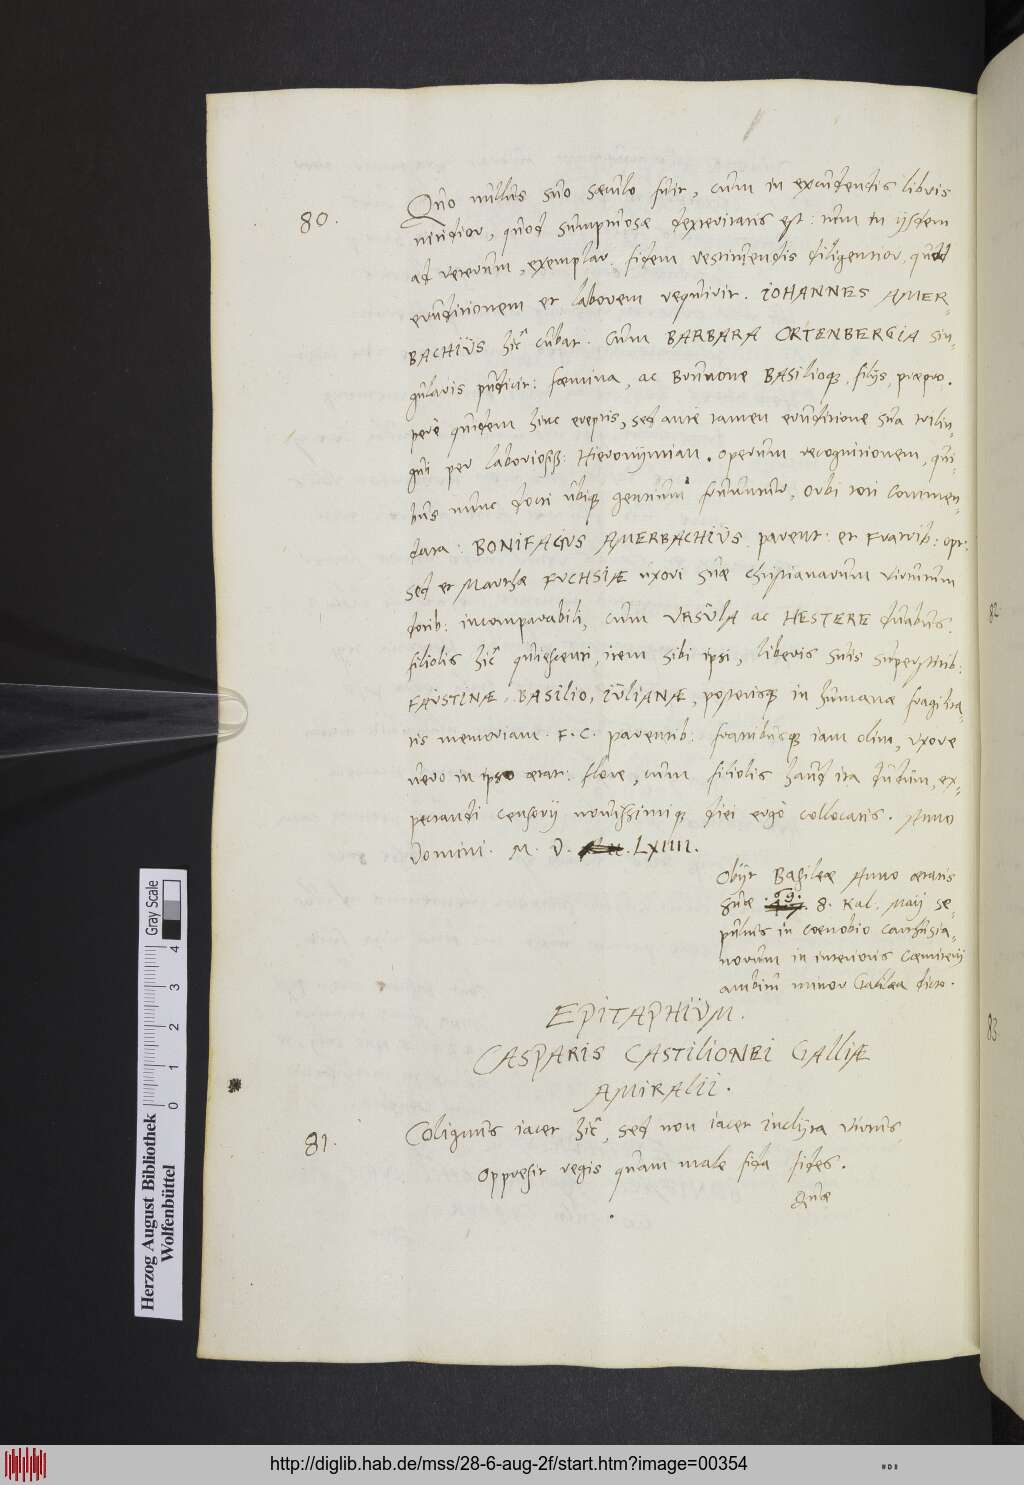 80.
Quo nullus suo sæculo fuit, cum in excudendis libris
nitidior, quod sumptuosæ dexteritatis est: tum in ijsdem
ad veterum, exemplar. fidem restituendis diligentior, quod
eruditionem et laborem requirit. IOHANNES AMER-
BACHIUS hîc cubat. Cum BARBARA ORTENBERGIA sin-
gularis pudicit: fœmina, ac Brunone BASilioq;, filijs, præpro-
perè quidem hinc ereptis, sed ante tamen eruditione sua trilin-
gui per laborioſiß: Hieronymian. operum recognitionem, qui-
bus nunc docti ubiq; gentium fruuntur, Orbi toti Commen-
data: BONIFACIUS AMERBACHIUS parent: et Fratrib: opt:
sed et Marthæ FUCHSIÆ uxori suæ Christianarum virtutum
dotib: incomparabili, cum URSULA ac HESTERE duabus.
filiolis hîc quiescenti, item sibi ipsi, liberis suis superstitib:
FAUSTINÆ, BASILIO, IULIANÆ, posterisq; in humanæ fragilita-
tis memoriam. F. C. parentib: fratribusq; iam olim, Uxore
vero in ipso ætat: flore, cum filiolis haud ita dudum, ex-
pectandi censorij novissimiq; diei ergò collocatis. Anno
Domini. M. D. LXIIII.
Obijt Basileæ Anno ætatis
suæ . 69. 8. Kal. Maij se-
pultus in cœnobio Carthusia-
norum in interioris Cœmiterij
ambitu minor Galilæa dicto.
EPITAPHIUM.
CASPARIS CASTILIONEI GALLIÆ
AMIRALII.
81.
Colignus iacet hîc, sed non iacet inclyta virtus,
Oppressit regis quam male fida fides.
Quæ
82.
83.
Gray Scale
0 1 2 3 4
Herzog August Bibliothek
Wolfenbüttel
http://diglib.hab.de/mss/28-6-aug-2f/start.htm?image=00354